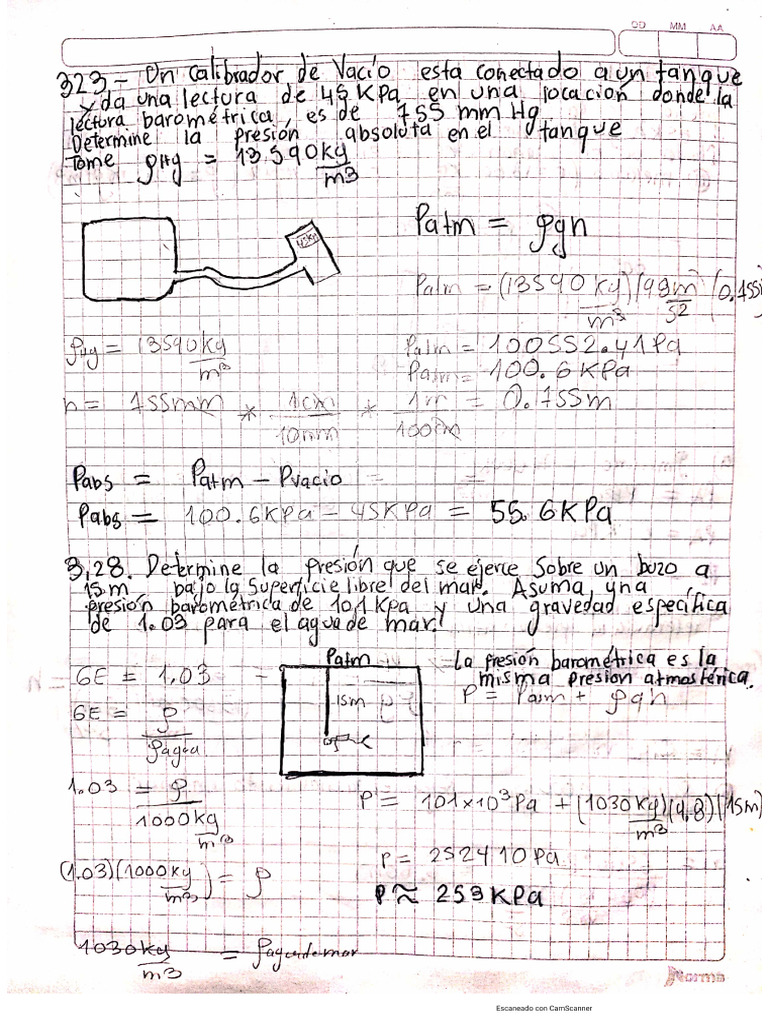 OD MM AA
323- Un calibrador de Vacío esta conectado a un tanque
y da una lectura de 45 KPa en una locación donde la
lectura barométrica, es de 755 mm Hg
Determine la presión absoluta en el tanque
Tome ρHg = 13590 kg/m3
45KPa
Patm = ρgh
Patm = (13590 kg/m3)(9.8 m/s2)(0.755
ρHg = 13590 kg/m3
Patm = 100552.41 Pa
Patm = 100.6 KPa
h = 755mm * 1cm/10mm * 1m/100cm = 0.755m
Pabs = Patm - Pvacio
Pabs = 100.6KPa - 45KPa = 55.6KPa
3,28. Determine la presión que se ejerce Sobre un buzo a
15.m bajo la superficie libre del mar. Asuma, una
presión barométrica de 101 Kpa y una gravedad específica
de 1.03 para el agua de mar.
Patm
15m
La presión barométrica es la
misma presion atmosférica.
GE = 1.03
P = Patm + ρgh
GE = ρ/ρagua
1.03 = ρ/1000 kg/m3
P = 101x10³ Pa + (1030 kg/m3)(9.8)(15m)
(1.03)(1000 kg/m3) = ρ
P = 252410 Pa
P ≈ 253 KPa
1030 kg/m3 = ρagua de mar
Norma
Escaneado con CamScanner